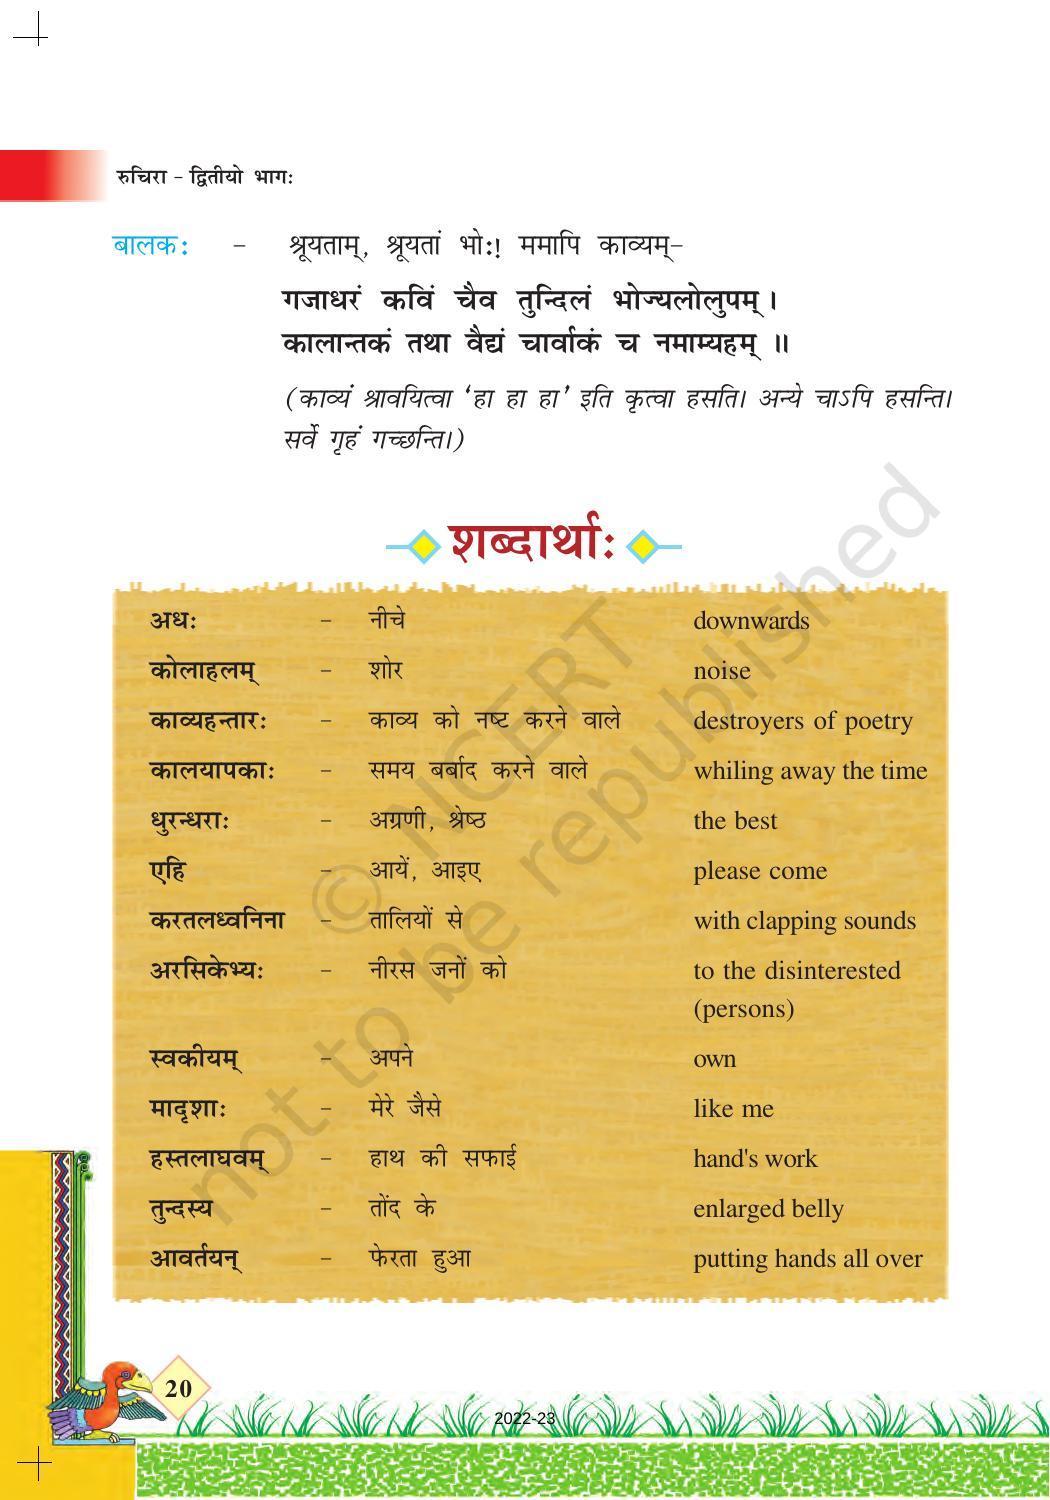 रुचिरा – द्वितीयो भागः
बालकः – श्रूयताम्, श्रूयतां भोः! ममापि काव्यम्–
गजाधरं कविं चैव तुन्दिलं भोज्यलोलुपम्।
कालान्तकं तथा वैद्यं चार्वाकं च नमाम्यहम् ॥
(काव्यं श्रावयित्वा ‘हा हा हा’ इति कृत्वा हसति। अन्ये चाऽपि हसन्ति।
सर्वे गृहं गच्छन्ति।)
शब्दार्थाः
अधः – नीचे downwards
कोलाहलम् – शोर noise
काव्यहन्तारः – काव्य को नष्ट करने वाले destroyers of poetry
कालयापकाः – समय बर्बाद करने वाले whiling away the time
धुरन्धराः – अग्रणी, श्रेष्ठ the best
एहि – आयें, आइए please come
करतलध्वनिना – तालियों से with clapping sounds
अरसिकेभ्यः – नीरस जनों को to the disinterested
(persons)
स्वकीयम् – अपने own
मादृशाः – मेरे जैसे like me
हस्तलाघवम् – हाथ की सफाई hand's work
तुन्दस्य – तोंद के enlarged belly
आवर्तयन् – फेरता हुआ putting hands all over
© NCERT
not to be republished
20
2022-23